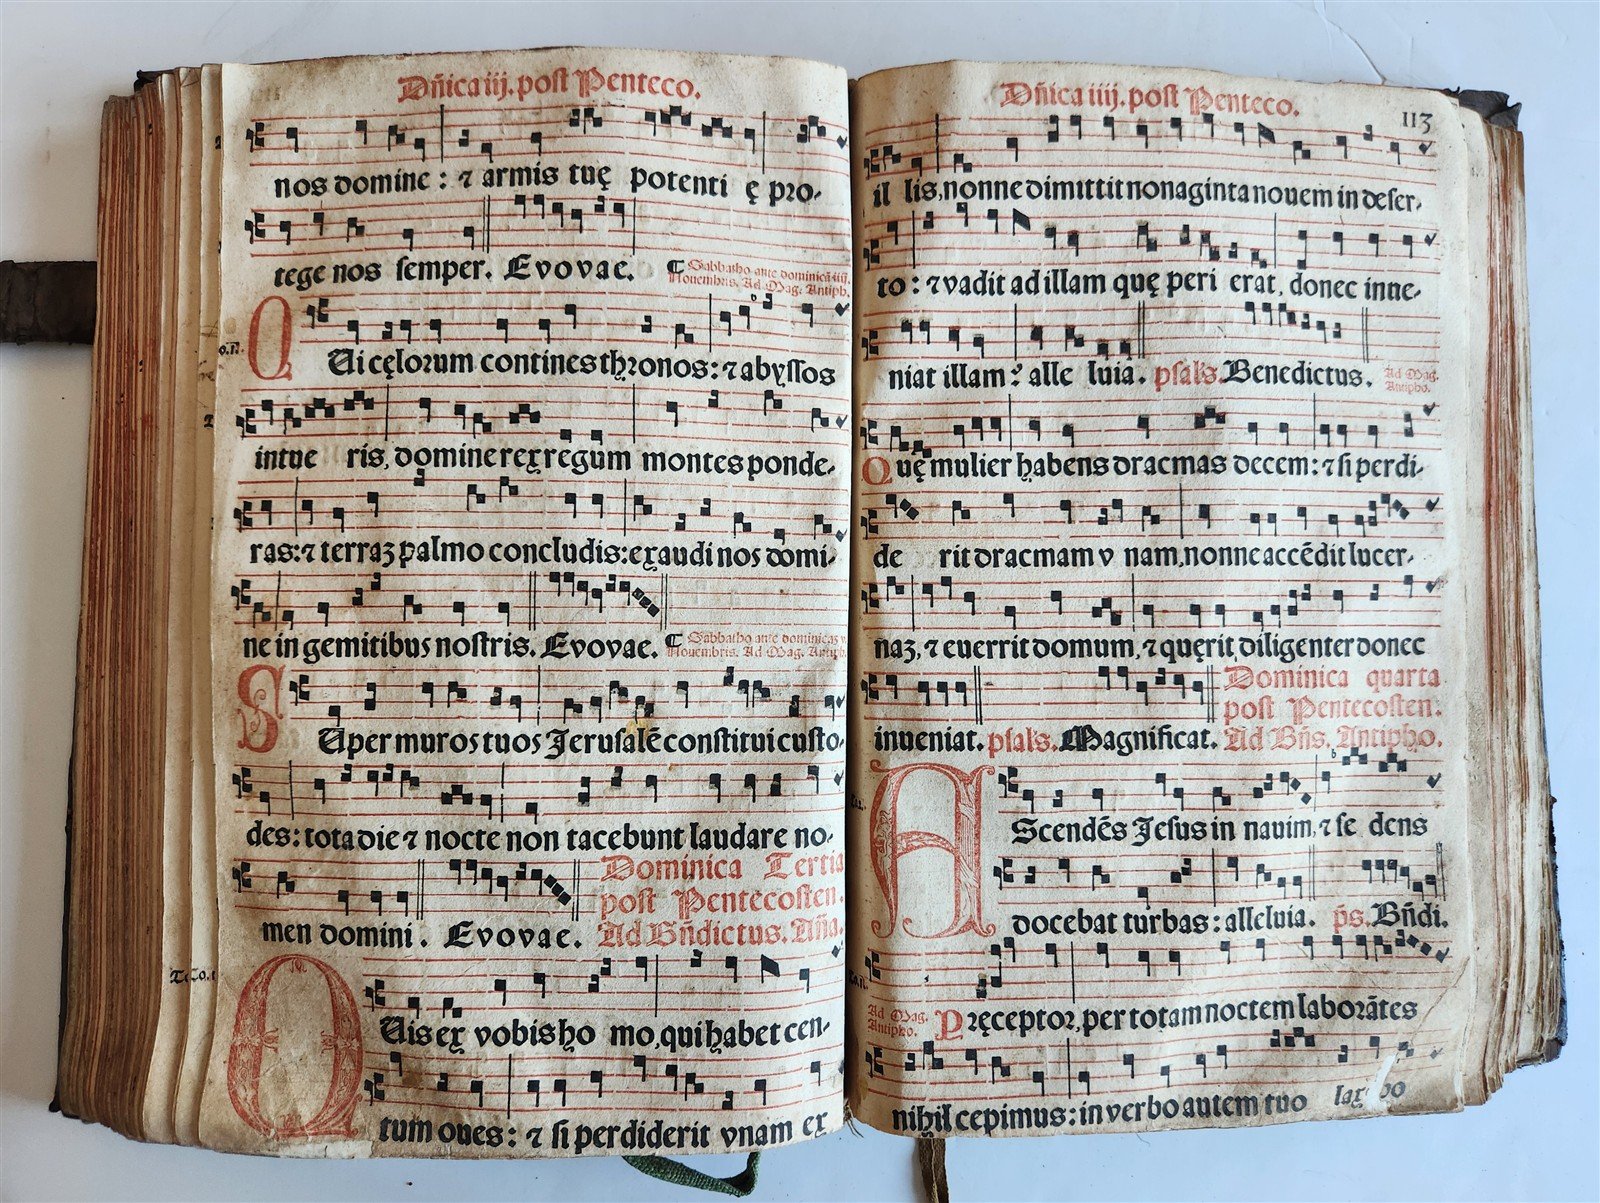 Dñica iij. post Penteco.
nos domine : ⁊ armis tuę potenti ę pro-
tege nos semper. Evovae. ¶ Sabbatho ante dominicã iiij.
Nouembris. Ad Mag. Antiph.
QUi cęlorum contines thronos: ⁊ abyssos
intue ris, domine rex regum montes ponde-
ras: ⁊ terraʒ palmo concludis: exaudi nos domi-
ne in gemitibus nostris. Evovae. ¶ Sabbatho ante dominicaʒ v.
Nouembris. Ad Mag. Antiph.
SUper muros tuos Jerusalẽ constitui custo-
des: tota die ⁊ nocte non tacebunt laudare no-
men domini. Evovae.
Dominica Tertia
post Pentecosten.
Ad Bñdictus. Aña.
QUis ex vobis ho mo, qui habet cen-
tum oues: ⁊ si perdiderit vnam ex
Dñica iiij. post Penteco.
113
il lis, nonne dimittit nonaginta nouem in deser-
to: ⁊ vadit ad illam quę peri erat, donec inue-
niat illam: alle luia. psals. Benedictus. Ad Mag.
Antipho.
Quę mulier habens dracmas decem: ⁊ si perdi-
de rit dracmam v nam, nonne accẽdit lucer-
naʒ, ⁊ euerrit domum, ⁊ quęrit diligenter donec
inueniat. psals. Magnificat.
Dominica quarta
post Pentecosten.
Ad Bñs. Antipho.
AScendẽs Jesus in nauim, ⁊ se dens
docebat turbas: alleluia. p̃s. Bñdi.
Ad Mag.
Antipho.
Pręceptor, per totam noctem laborãtes
nihil cepimus: in verbo autem tuo